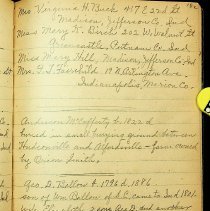 Mrs Virginia H. Buck 417 E 22d St
Madison, Jefferson Co. Ind
Miss Mary K. Birch 202 W. Walnut St
Greencastle, Putnam Co. Ind
Miss Mary Hill, Madison, Jefferson Co. Ind
Mrs. F. S. Fairchild 19 N Arlington Ave.
Indianapolis, Marion Co.
Anderson McCafferty b. 1822 d
buried in small burying ground between
Hudsonville and Alfordsville - farm owned
by Orson Smith.
Geo. D. b. 1796 d. 1886.
son of Wm of S.C. came to Ind 1801.